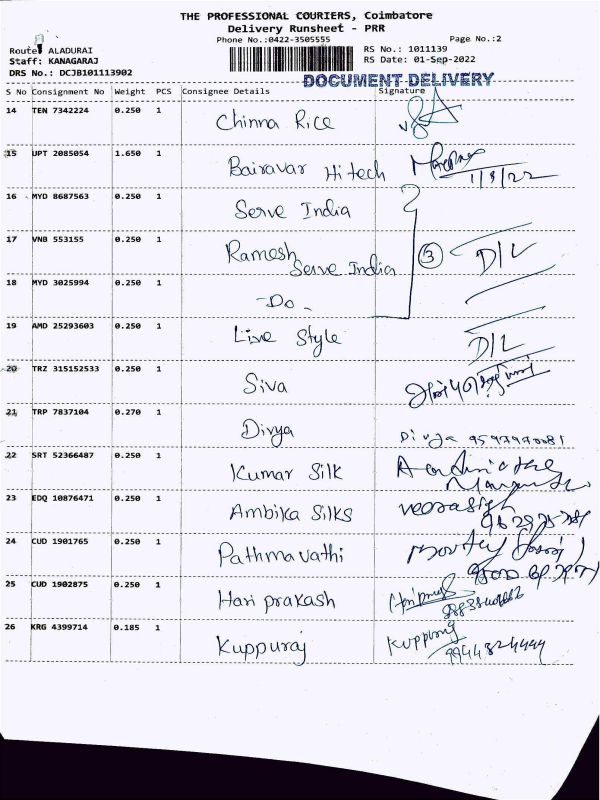 THE PROFESSIONAL COURIERS, Coimbatore
Delivery Runsheet - PRR
Phone No.:0422-3505555 Page No.:2
Route: ALADURAI RS No.: 1011139
Staff: KANAGARAJ RS Date: 01-Sep-2022
DRS No.: DCJB101113902
DOCUMENT DELIVERY
S No Consignment No Weight PCS Consignee Details Signature
14 TEN 7342224 0.250 1 Chinna Rice
15 UPT 2085054 1.650 1 Bairavar Hitech
1/9/22
16 MYD 8687563 0.250 1 Serve India
17 VNB 553155 0.250 1 Ramesh Serve India 3 D/L
18 MYD 3025994 0.250 1 -Do-
19 AMD 25293603 0.250 1 Live Style D/L
20 TRZ 315152533 0.250 1 Siva
21 TRP 7837104 0.270 1 Divya Divya 9597970081
22 SRT 52366487 0.250 1 Kumar Silk
23 EDQ 10876471 0.250 1 Ambika Silks
24 CUD 1901765 0.250 1 Pathmavathi
25 CUD 1902875 0.250 1 Hari prakash
26 KRG 4399714 0.185 1 Kuppuraj Kuppuraj
9944324444